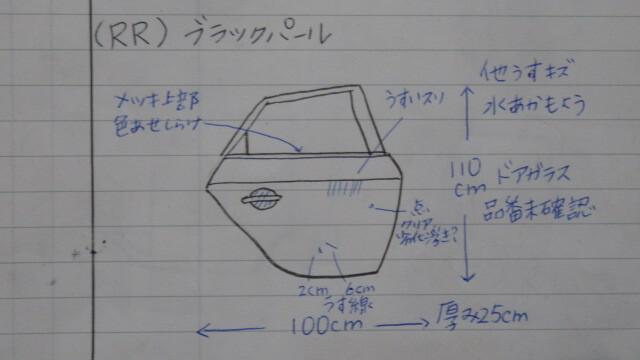 (RR) ブラックパール
他うすキズ
水あかもよう
メッキ上部
色あせしらけ
うすいスリ
110
cm
ドアガラス
品番未確認
点
クリア
劣化浮き?
2cm 6cm
うす線
100cm
厚み25cm